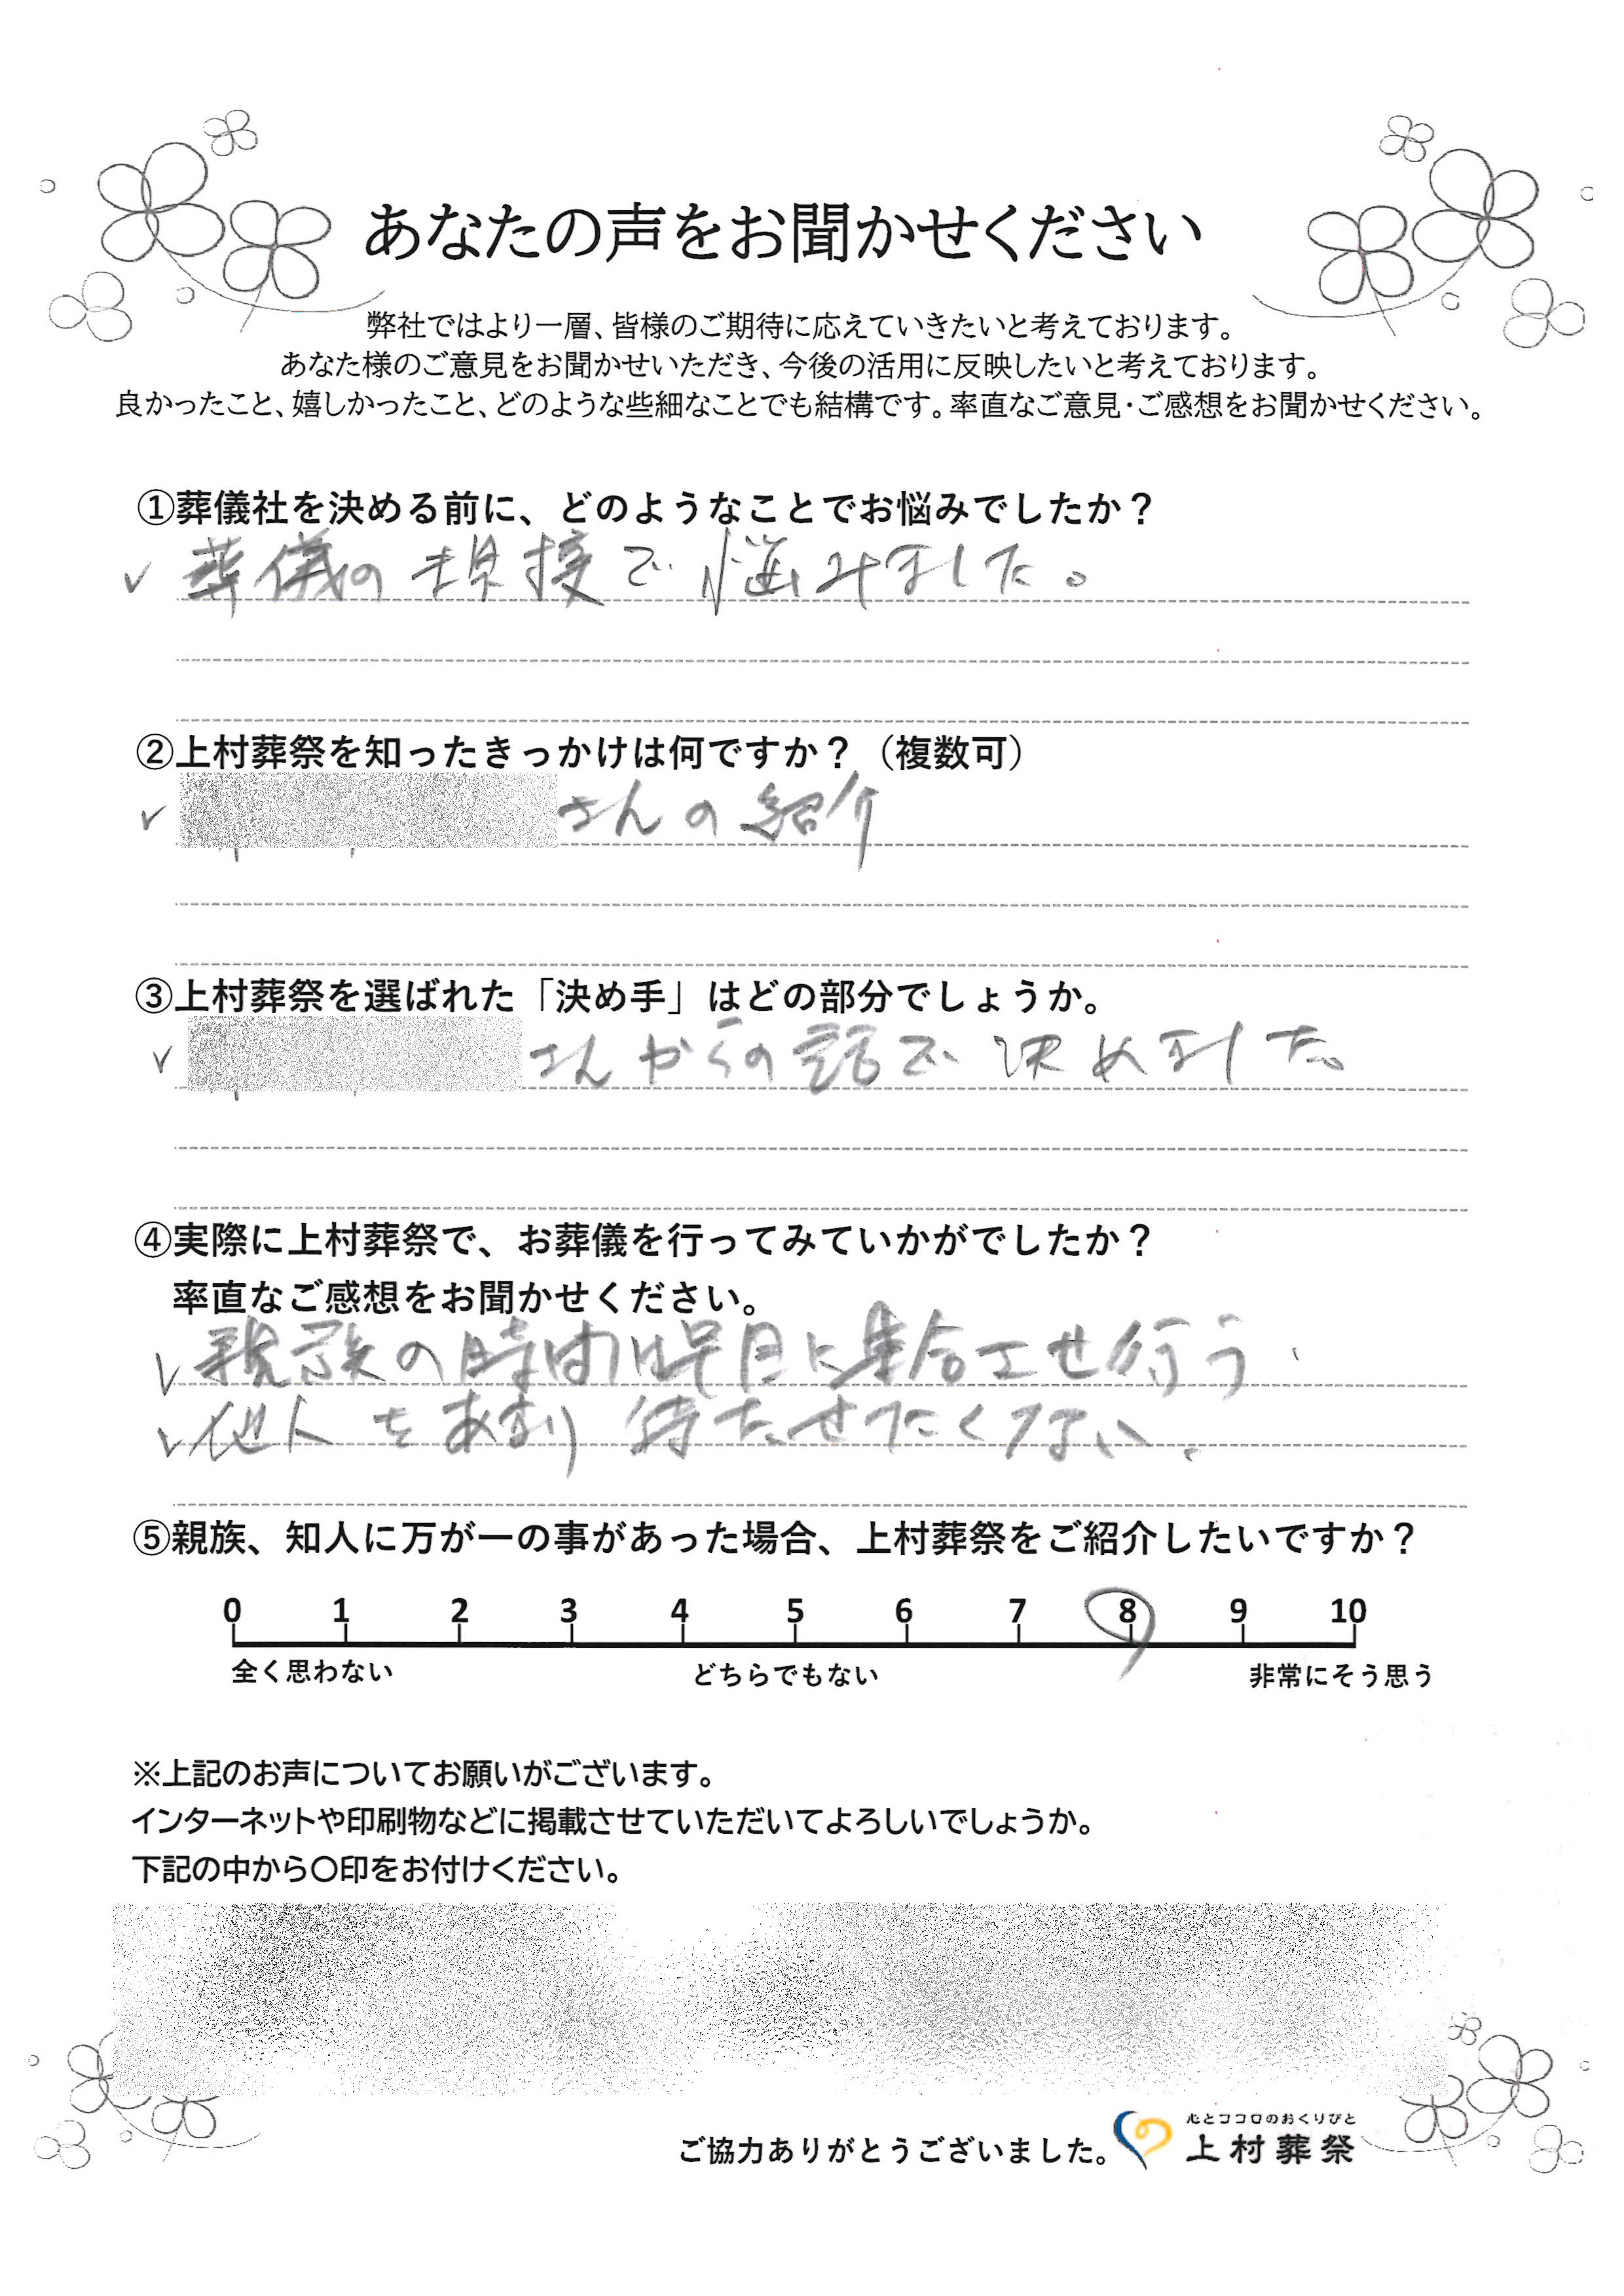 あなたの声をお聞かせください
弊社ではより一層、皆様のご期待に応えていきたいと考えております。
あなた様のご意見をお聞かせいただき、今後の活用に反映したいと考えております。
良かったこと、嬉しかったこと、どのような些細なことでも結構です。率直なご意見・ご感想をお聞かせください。
①葬儀社を決める前に、どのようなことでお悩みでしたか？
✓ 葬儀の で悩みました。
②上村葬祭を知ったきっかけは何ですか？（複数可）
✓ さんの紹介
③上村葬祭を選ばれた「決め手」はどの部分でしょうか。
✓ さんからの話で決めました。
④実際に上村葬祭で、お葬儀を行ってみていかがでしたか？
率直なご感想をお聞かせください。
✓ 親族の時間は早目に集合させ行う
✓ 他人をあまり待たせたくない。
⑤親族、知人に万が一の事があった場合、上村葬祭をご紹介したいですか？
0 1 2 3 4 5 6 7 8 9 10
全く思わない どちらでもない 非常にそう思う
※上記のお声についてお願いがございます。
インターネットや印刷物などに掲載させていただいてよろしいでしょうか。
下記の中から〇印をお付けください。
心とココロのおくりびと
ご協力ありがとうございました。 上村葬祭